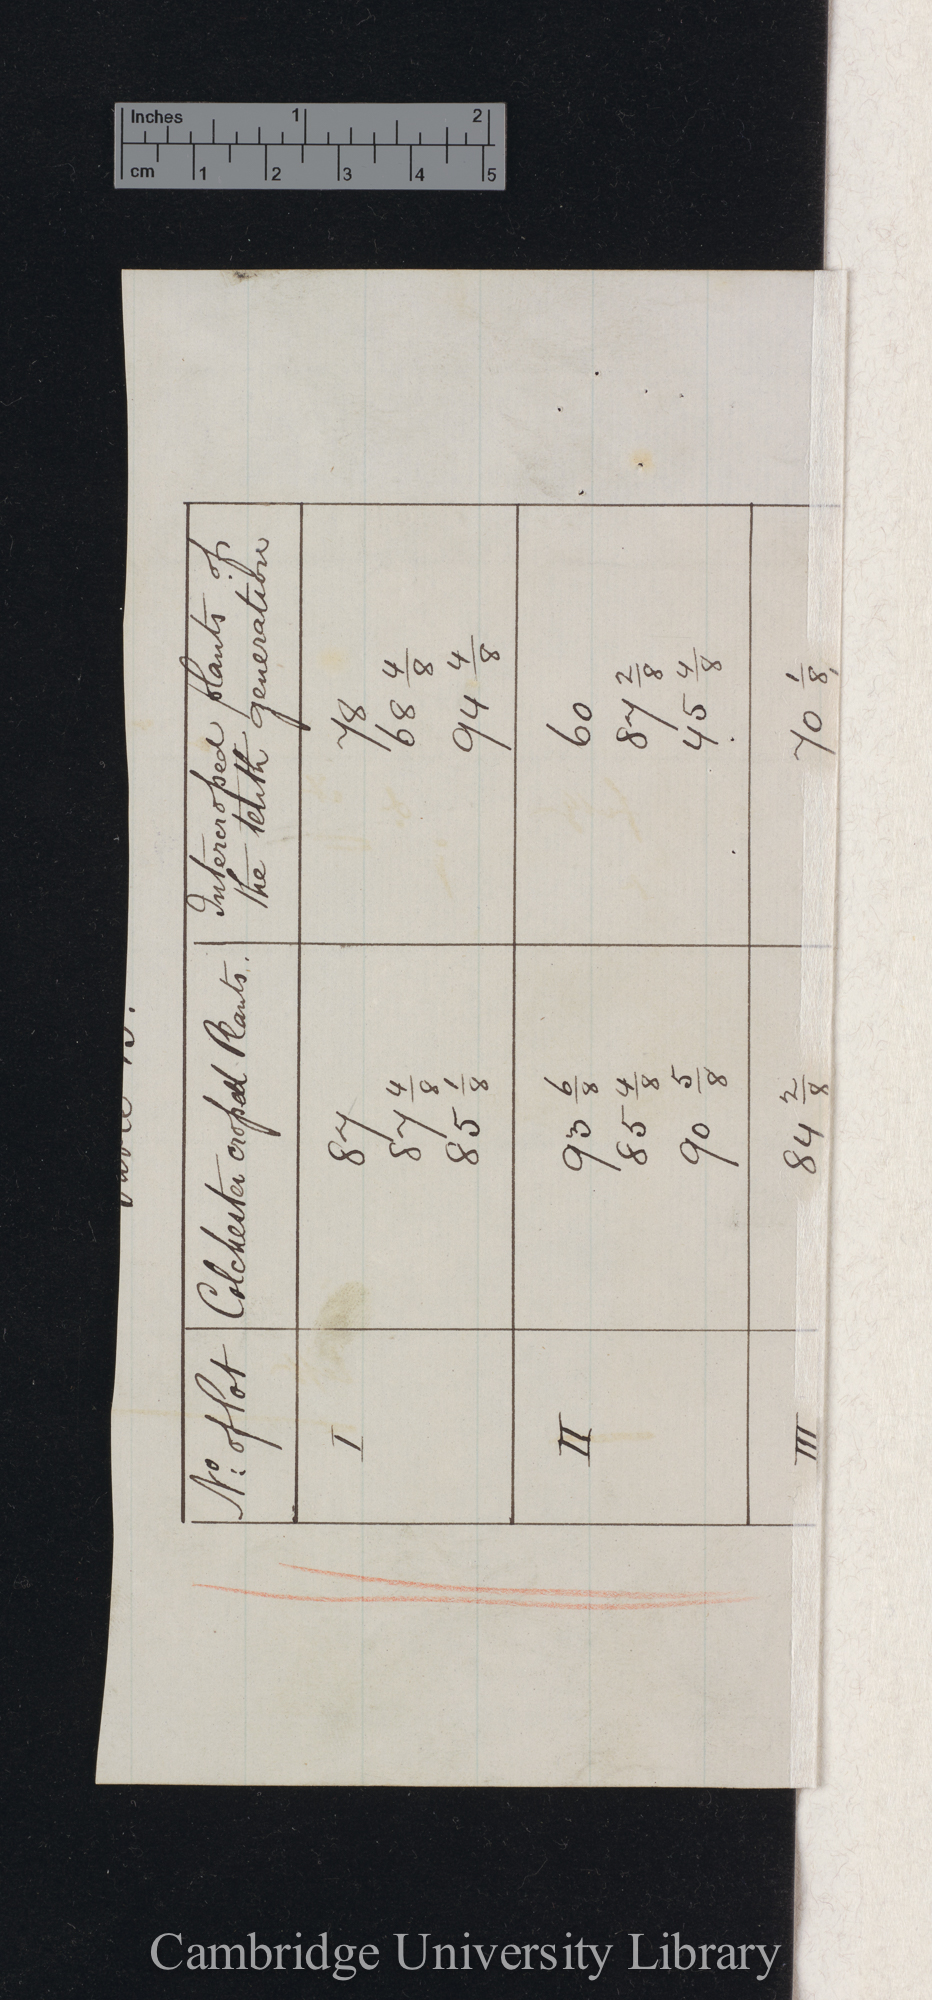 Inches 1 2
cm 1 2 3 4 5
No: of Pot Colchester croped Plants. Intercroped plants of
the tenth generation
I 87 78
87 4/8 68 4/8
85 1/8 94 4/8
II 93 6/8 60
85 4/8 87 2/8
90 5/8 45 4/8
III 84 2/8 70 1/8
Cambridge University Library